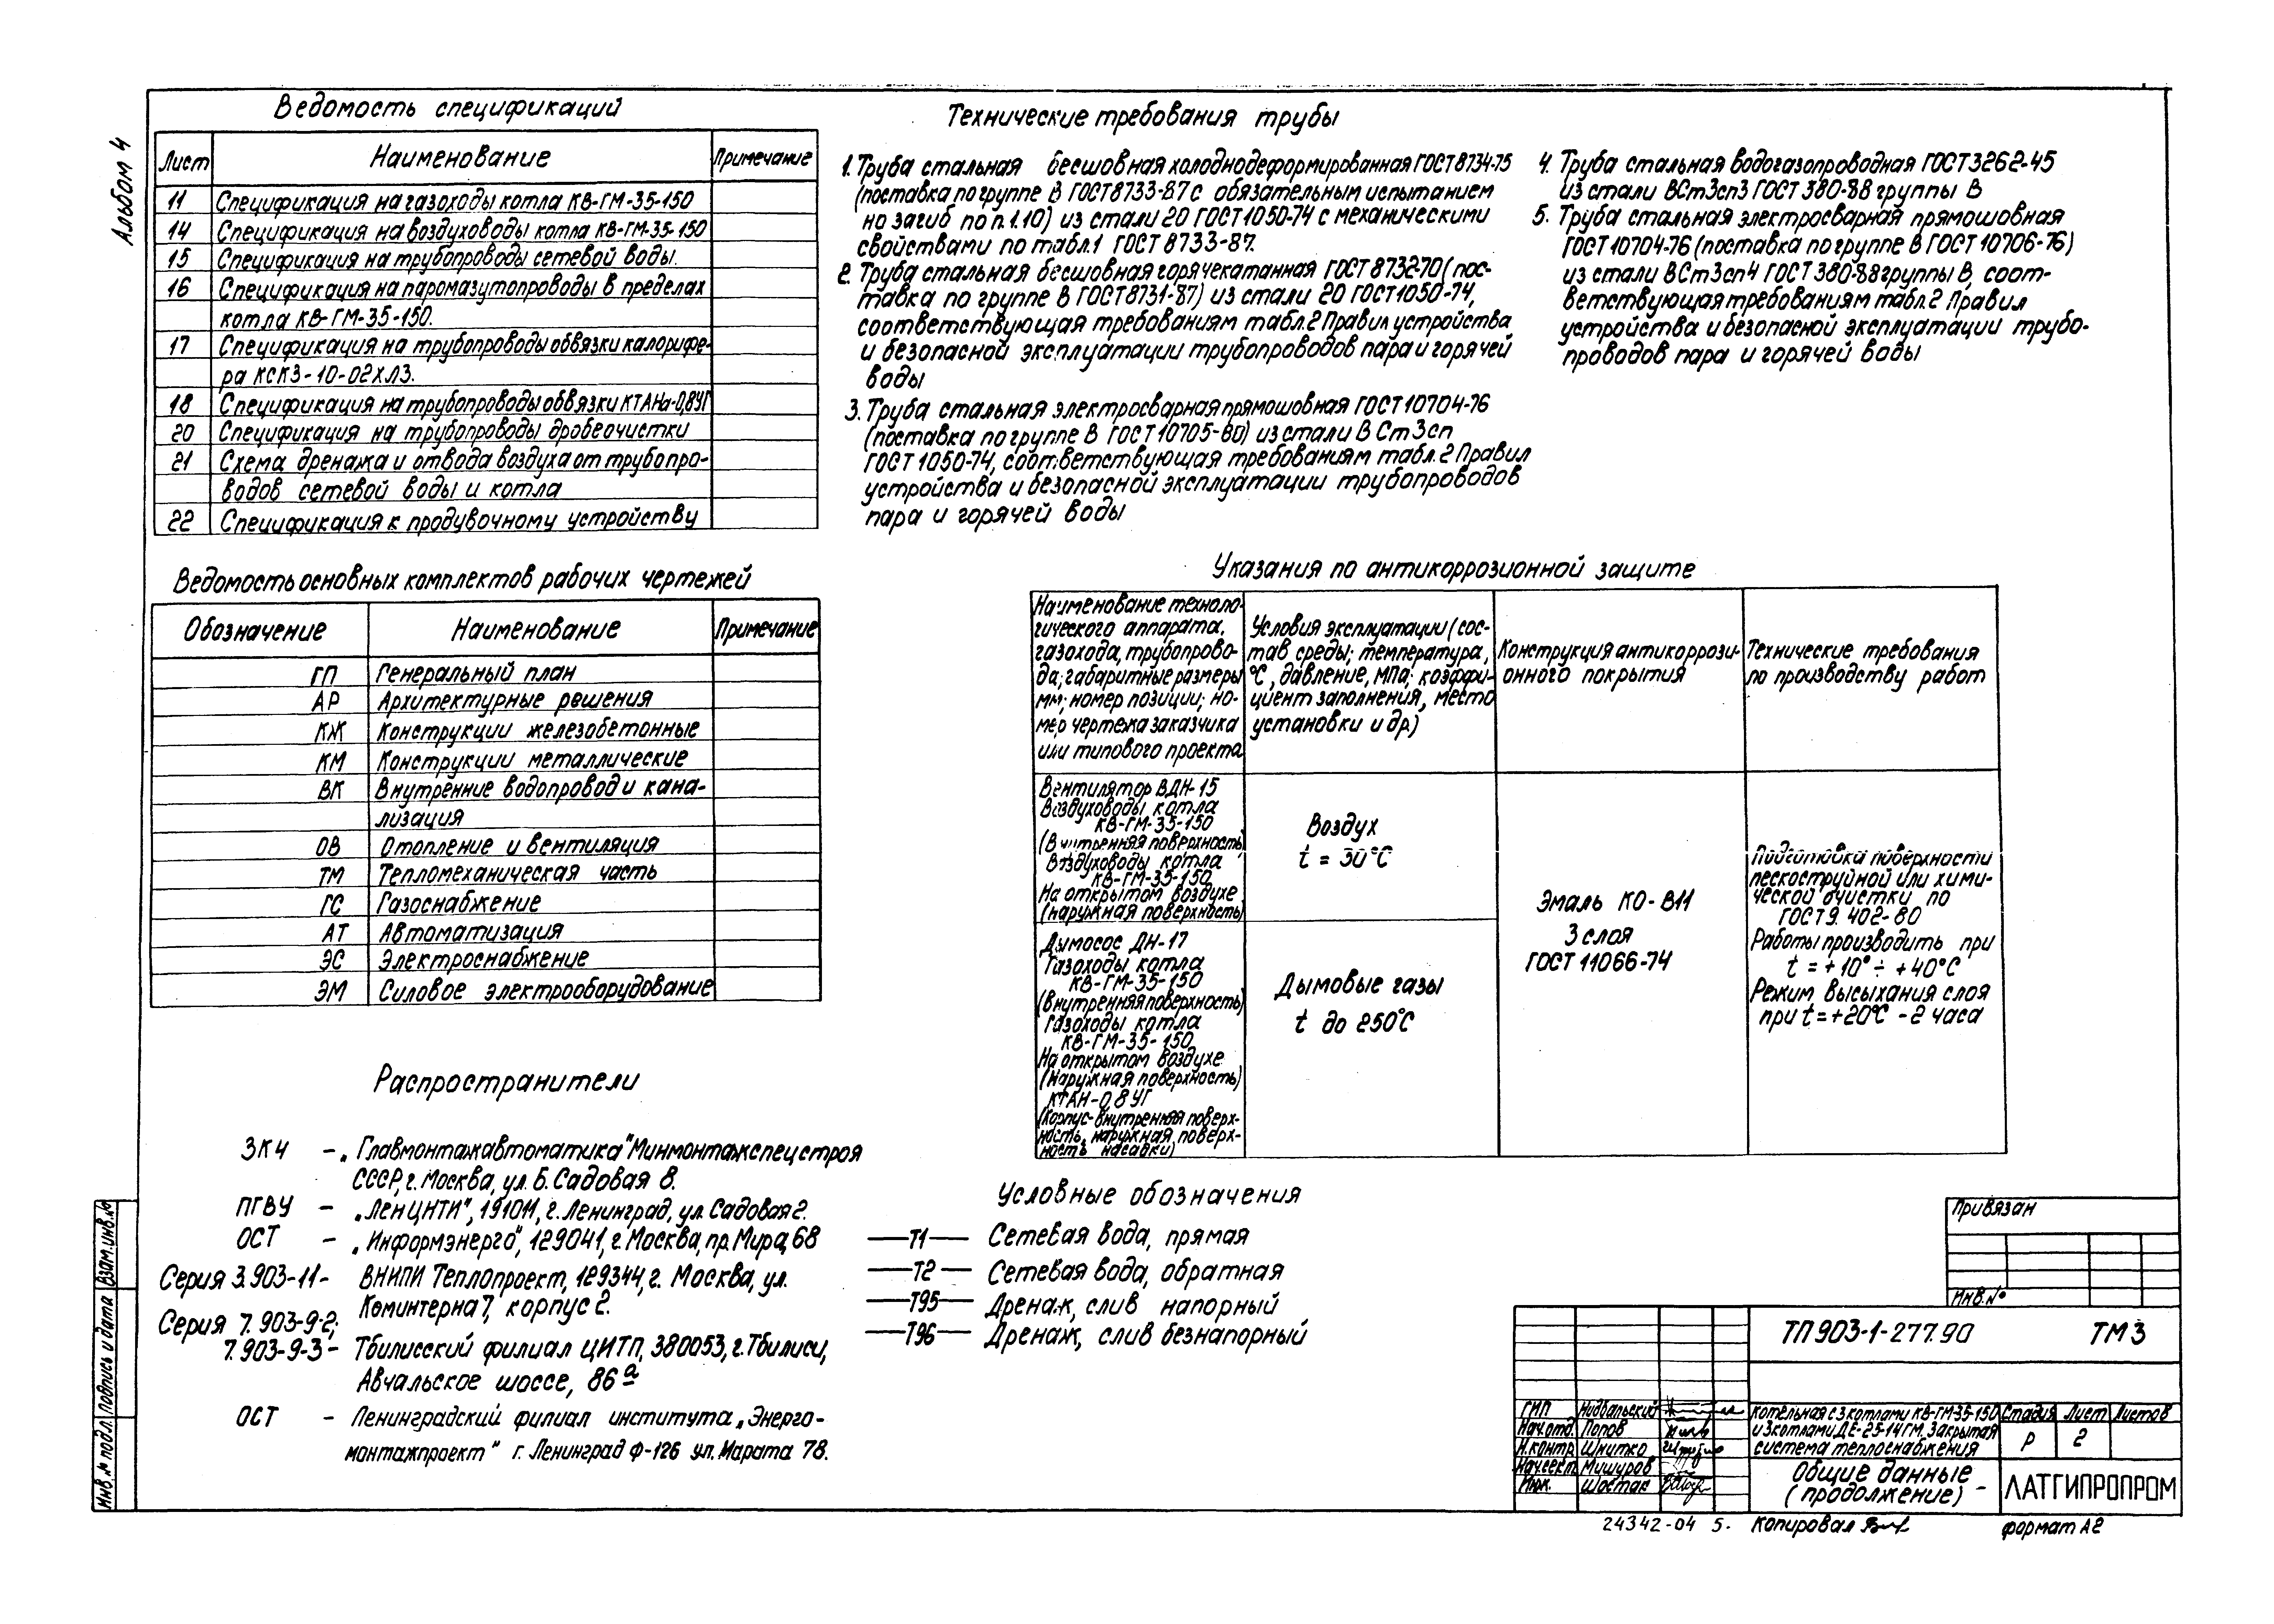 Альбом 4
Ведомость спецификаций
Лист Наименование Примечание
11 Спецификация на газоходы котла КВ-ГМ-35-150
14 Спецификация на воздуховоды котла КВ-ГМ-35-150
15 Спецификация на трубопроводы сетевой воды.
16 Спецификация на паромазутопроводы в пределах
котла КВ-ГМ-35-150.
17 Спецификация на трубопроводы обвязки калорифе-
ра КСК3-10-02ХЛ3.
18 Спецификация на трубопроводы обвязки КТАНа-0,8УГ
20 Спецификация на трубопроводы дробеочистки
21 Схема дренажа и отвода воздуха от трубопро-
водов сетевой воды и котла
22 Спецификация к продувочному устройству
Ведомость основных комплектов рабочих чертежей
Обозначение Наименование Примечание
ГП Генеральный план
АР Архитектурные решения
КЖ Конструкции железобетонные
КМ Конструкции металлические
ВК Внутренние водопровод и кана-
лизация
ОВ Отопление и вентиляция
ТМ Тепломеханическая часть
ГС Газоснабжение
АТ Автоматизация
ЭС Электроснабжение
ЭМ Силовое электрооборудование
Распространители
ЗК4 – „Главмонтажавтоматика" Минмонтажспецстроя
СССР, г. Москва, ул. Б. Садовая 8.
ПГВУ – „ЛенЦНТИ", 191011, г. Ленинград, ул. Садовая 2.
ОСТ – „Информэнерго", 129041, г. Москва, пр. Мира, 68
Серия 3.903-11- ВНИПИ Теплопроект, 129344, г. Москва, ул.
Коминтерна 7, корпус 2.
Серия 7.903-9-2;
7.903-9-3- Тбилисский филиал ЦИТП, 380053, г. Тбилиси,
Авчальское шоссе, 86а
ОСТ – Ленинградский филиал института „Энерго-
монтажпроект" г. Ленинград Ф-126 ул. Марата 78.
Технические требования трубы
1. Труба стальная бесшовная холоднодеформированная ГОСТ 8734-75
(поставка по группе В ГОСТ 8733-87 с обязательным испытанием
на загиб по п. 1.10) из стали 20 ГОСТ 1050-74 с механическими
свойствами по табл.1 ГОСТ 8733-87.
2. Труба стальная бесшовная горячекатанная ГОСТ 8732-70 (пос-
тавка по группе В ГОСТ 8731-87) из стали 20 ГОСТ 1050-74,
соответствующая требованиям табл.2 Правил устройства
и безопасной эксплуатации трубопроводов пара и горячей
воды
3. Труба стальная электросварная прямошовная ГОСТ 10704-76
(поставка по группе В ГОСТ 10705-80) из стали В Ст3сп
ГОСТ 1050-74, соответствующая требованиям табл.2 Правил
устройства и безопасной эксплуатации трубопроводов
пара и горячей воды
4. Труба стальная водогазопроводная ГОСТ 3262-45
из стали ВСт3сп3 ГОСТ 380-88 группы В
5. Труба стальная электросварная прямошовная
ГОСТ 10704-76 (поставка по группе В ГОСТ 10706-76)
из стали ВСт3сп4 ГОСТ 380-88 группы В, соот-
ветствующая требованиям табл.2 Правил
устройства и безопасной эксплуатации трубо-
проводов пара и горячей воды
Указания по антикоррозионной защите
Наименование техноло-
гического аппарата,
газохода, трубопрово-
да; габаритные размеры
мм; номер позиции; но-
мер чертежа заказчика
или типового проекта
Условия эксплуатации (сос-
тав среды; температура,
°С, давление, МПа; коэффи-
циент заполнения, место
установки и др.)
Конструкция антикоррози-
онного покрытия
Технические требования
по производству работ
Вентилятор ВДН-15
Воздуховоды котла
КВ-ГМ-35-150
(Внутренняя поверхность)
Воздуховоды котла
КВ-ГМ-35-150
На открытом воздухе
(наружная поверхность)
Воздух
t = 30°С
Дымосос ДН-17
Газоходы котла
КВ-ГМ-35-150
(Внутренняя поверхность)
Газоходы котла
КВ-ГМ-35-150
На открытом воздухе
(Наружная поверхность)
КТАН-0,8 УГ
(Корпус-внутренняя поверх-
ность, наружная поверх-
ность насадки)
Дымовые газы
t до 250°С
Эмаль КО-811
3 слоя
ГОСТ 11066-74
Подготовка поверхности
пескоструйной или хими-
ческой очистки по
ГОСТ 9.402-80
Работы производить при
t = +10° ÷ +40°С
Режим высыхания слоя
при t=+20°С - 2 часа
Условные обозначения
—Т1— Сетевая вода, прямая
—Т2— Сетевая вода, обратная
—Т95— Дренаж, слив напорный
—Т96— Дренаж, слив безнапорный
Привязан
Инв. №
ТП 903-1-277.90 ТМ3
ГИП Нидвальский
Нач.отд. Попов
Н.контр. Шнитко
Нач.сект. Мишуров
Инж. Шостак
Котельная с 3 котлами КВ-ГМ-35-150
и 3 котлами ДЕ-25-14ГМ. Закрытая
система теплоснабжения
Стадия Лист Листов
Р 2
Общие данные
(продолжение)
ЛАТГИПРОПРОМ
24342-04 5.
Копировал
формат А2
Взам. инв. №
Подпись и дата
Инв. № подл.